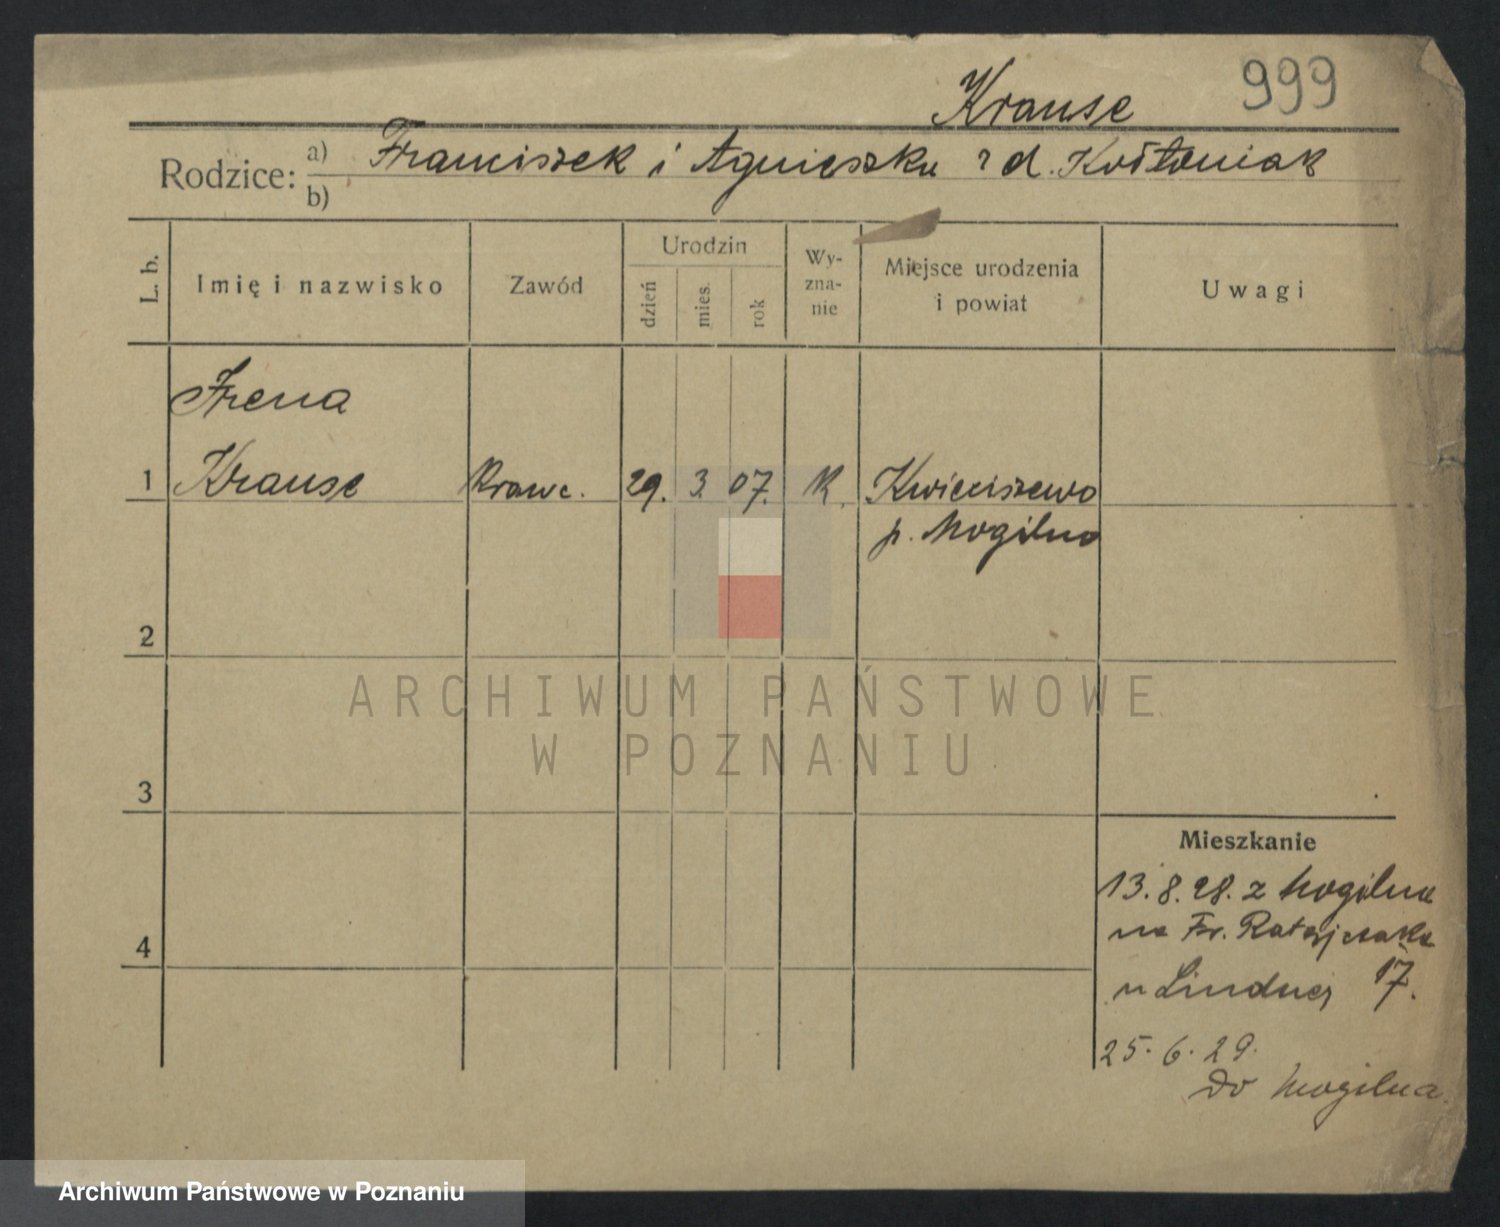 Krause 999
Rodzice: a) Franciszek i Agnieszka rd. Kołtoniak
b)
L. b. Imię i nazwisko Zawód Urodzin dzień mies. rok Wy-zna-nie Miejsce urodzenia i powiat Uwagi
Irena
1 Krause Krawc. 29. 3. 07. K. Kwieciszewo
p. Mogilno
2
ARCHIWUM PAŃSTWOWE
W POZNANIU
3
Mieszkanie
13.8.28. z Mogilna
na Fr. Ratajczaka
4
u Lindnej 17.
25.6.29.
Do Mogilna.
Archiwum Państwowe w Poznaniu